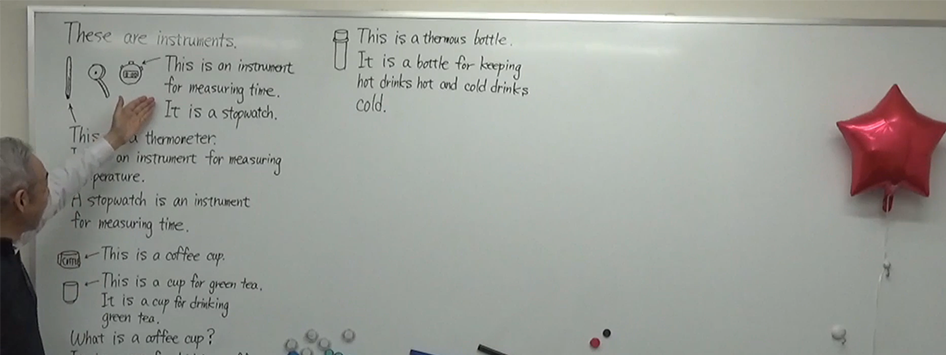 These are instruments.
This is an instrument
for measuring time.
It is a stopwatch.
This a thermometer.
an instrument for measuring
perature.
A stopwatch is an instrument
for measuring time.
This is a coffee cup.
This is a cup for green tea.
It is a cup for drinking
green tea.
What is a coffee cup?
This is a thermous bottle.
It is a bottle for keeping
hot drinks hot and cold drinks
cold.